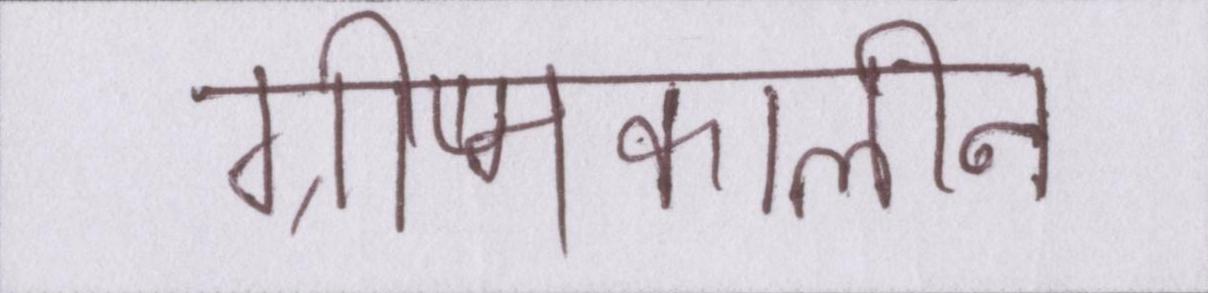 ग्रीष्मकालीन